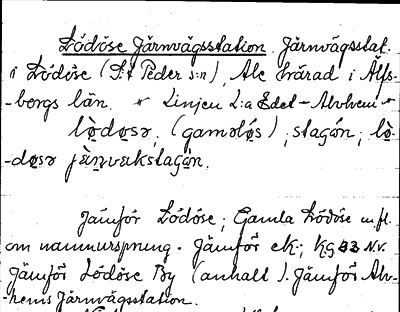 Lödöse Järnvägsstation. Järnvägsstat.
i Lödöse (S:t Peder s:n), Ale härad i Älfs-
-borgs län. * Linjen L:a Edet - Alvhem *
lò̤do̤sə. (gamələ́s) ; stagón ; lò̤-
-do̤sə jàn̤vakstagón.
Jämför Lödöse ; Gamla Lödöse m.fl.
om namnursprung. Jämför ek ; kg 23 N.V.
Jämför Lödöse By (anhalt). Jämför Alv-
-hems Järnvägsstation.